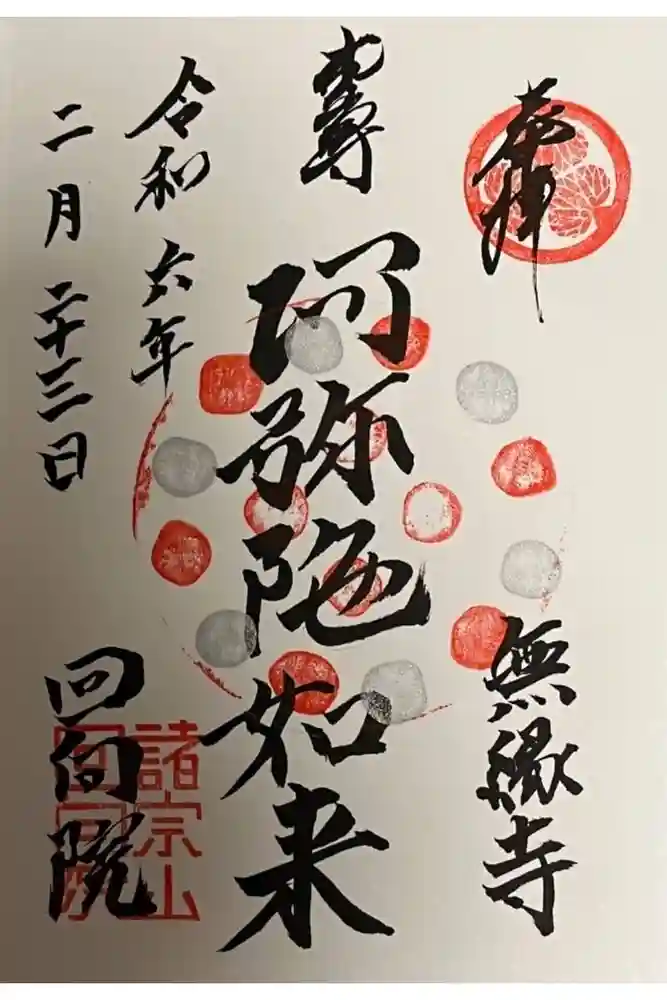 奉拝
無縁寺
本尊
阿弥陀如来
令和六年
二月二十三日
回向院
諸宗山
回向院